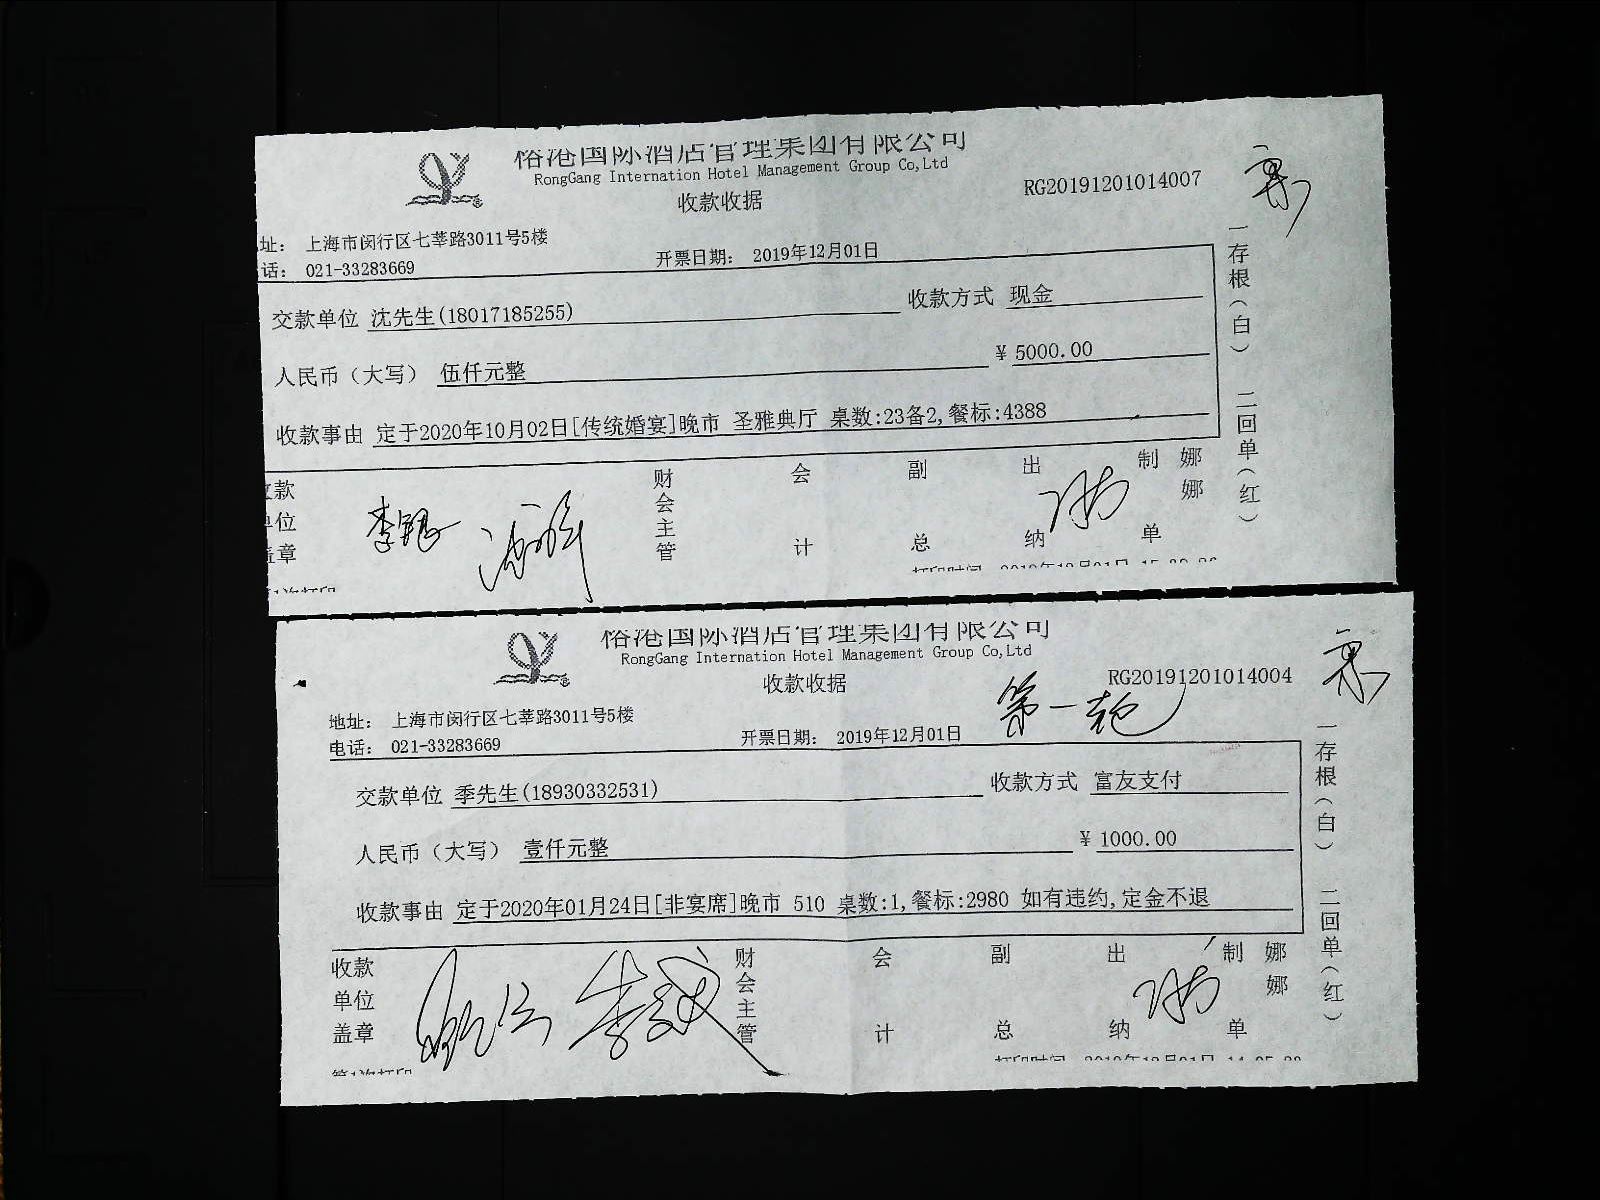 俗港国际酒店管理集团有限公司
RongGang Internation Hotel Management Group Co,Ltd
收款收据
RG20191201014007
址： 上海市闵行区七莘路3011号5楼
话： 021-33283669
开票日期： 2019年12月01日
交款单位 沈先生(18017185255)
收款方式 现金
人民币（大写） 伍仟元整
￥ 5000.00
收款事由 定于2020年10月02日[传统婚宴]晚市 圣雅典厅 桌数:23备2,餐标:4388
一存根（白） 二回单（红）
收款单位盖章
财会主管
会计
副总
出纳
制单
娜娜
打印时间 2019年12月01日
第1次打印
俗港国际酒店管理集团有限公司
RongGang Internation Hotel Management Group Co,Ltd
收款收据
RG20191201014004
第一轮
地址： 上海市闵行区七莘路3011号5楼
电话： 021-33283669
开票日期： 2019年12月01日
交款单位 季先生(18930332531)
收款方式 富友支付
人民币（大写） 壹仟元整
￥ 1000.00
收款事由 定于2020年01月24日[非宴席]晚市 510 桌数:1,餐标:2980 如有违约,定金不退
一存根（白） 二回单（红）
收款单位盖章
财会主管
会计
副总
出纳
制单
娜娜
打印时间 2019年12月01日
第1次打印